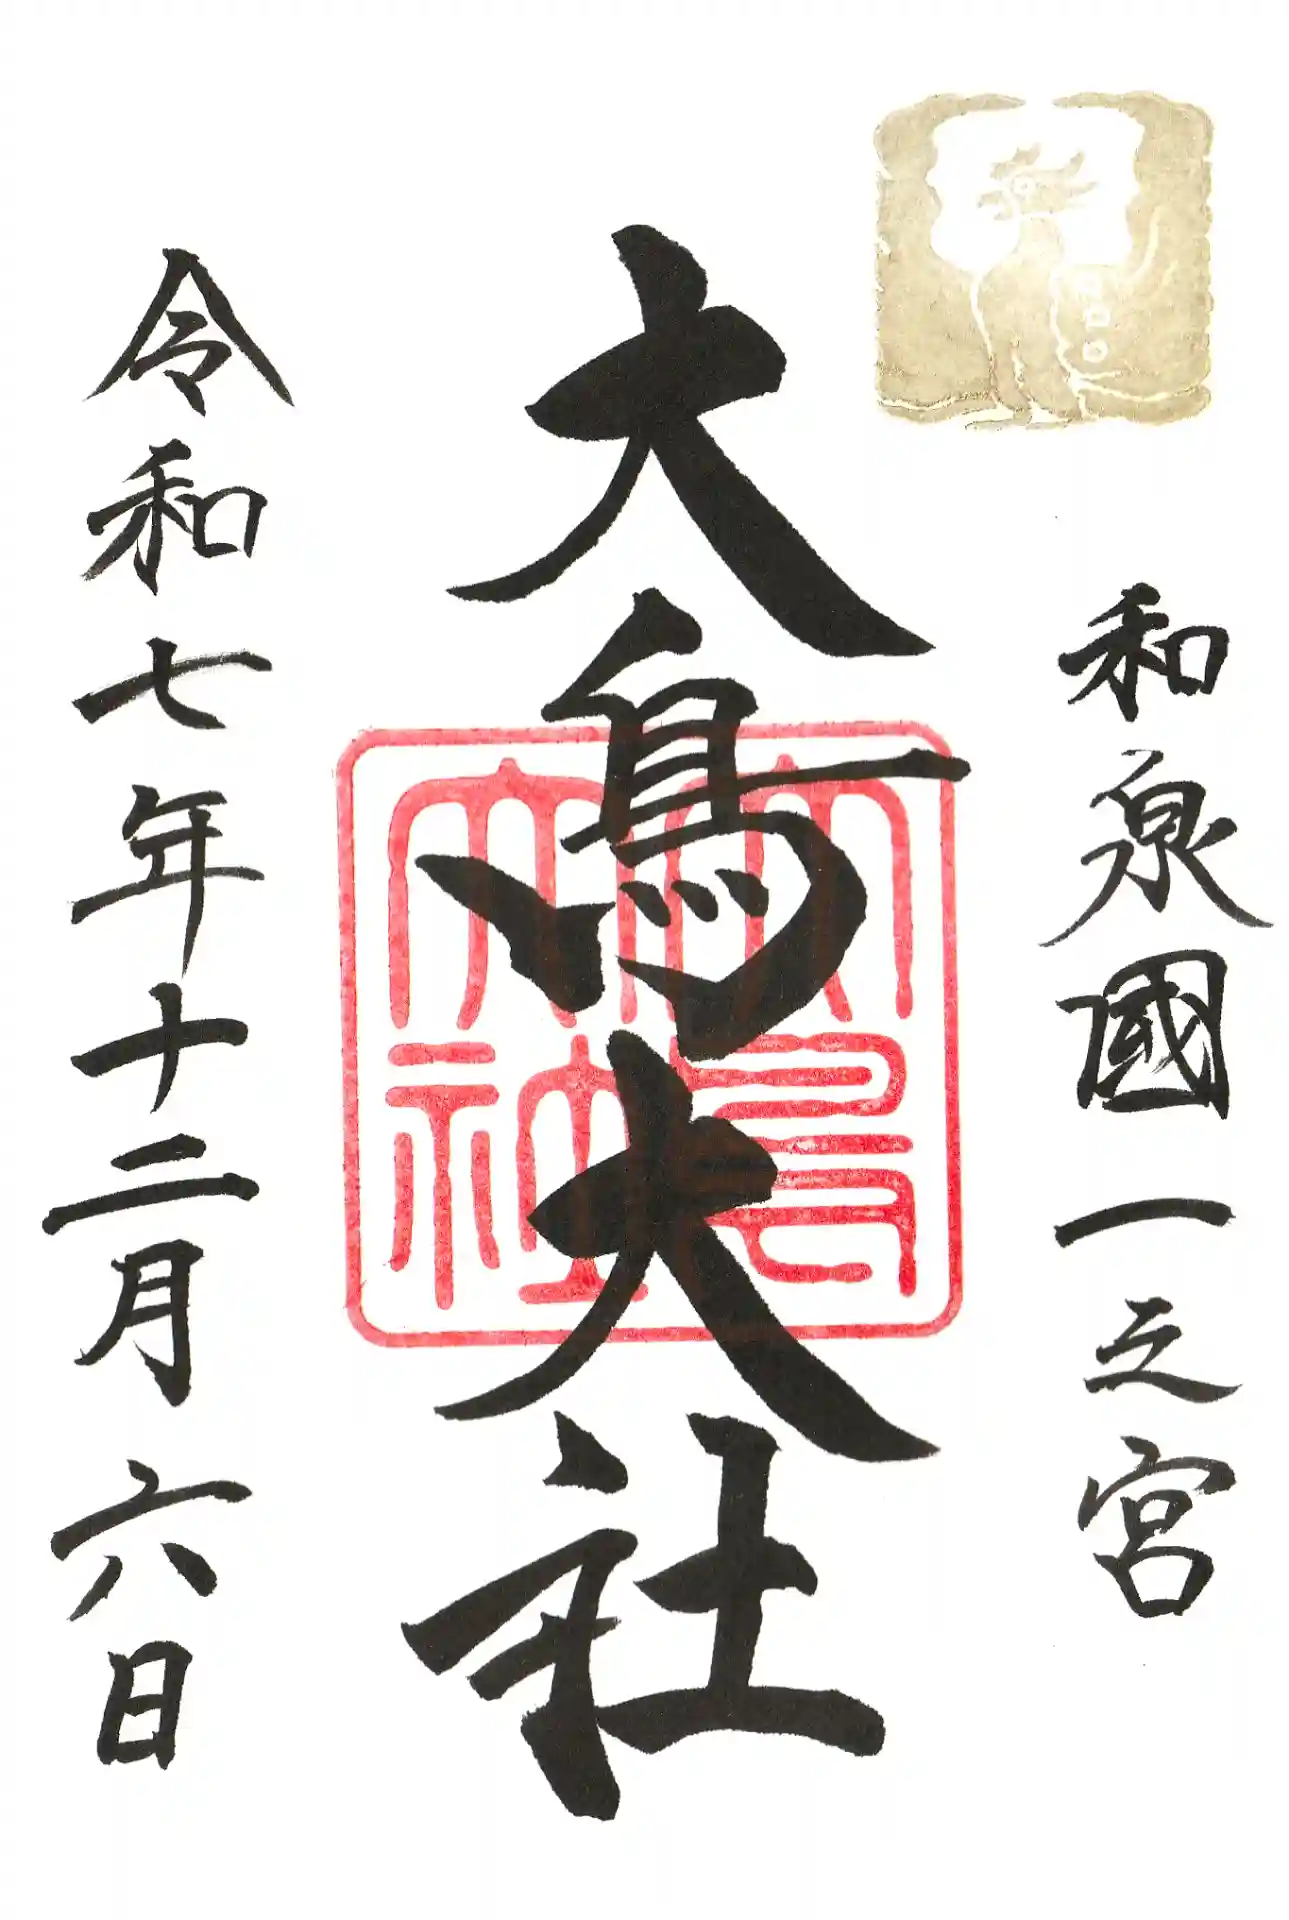 和泉國一之宮
大鳥大社
大鳥
大社
令和七年十二月六日